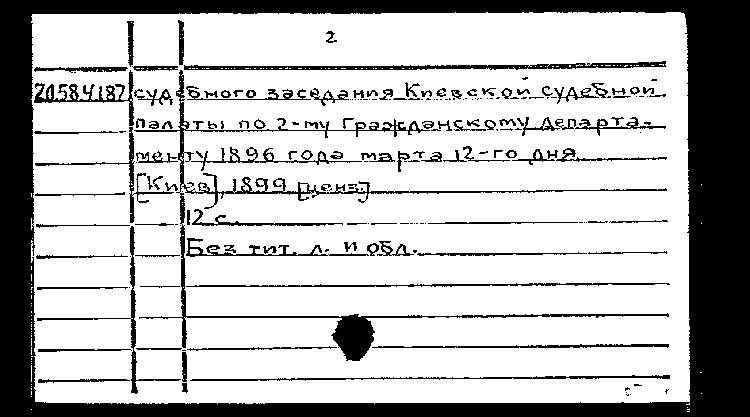 2
20.58.4.187 судебного заседания Киевской судебной
палаты по 2-му Гражданскому департа-
менту 1896 года марта 12-го дня.
[Киев], 1899 [ценз.]
12 с.
Без тит. л. и обл.